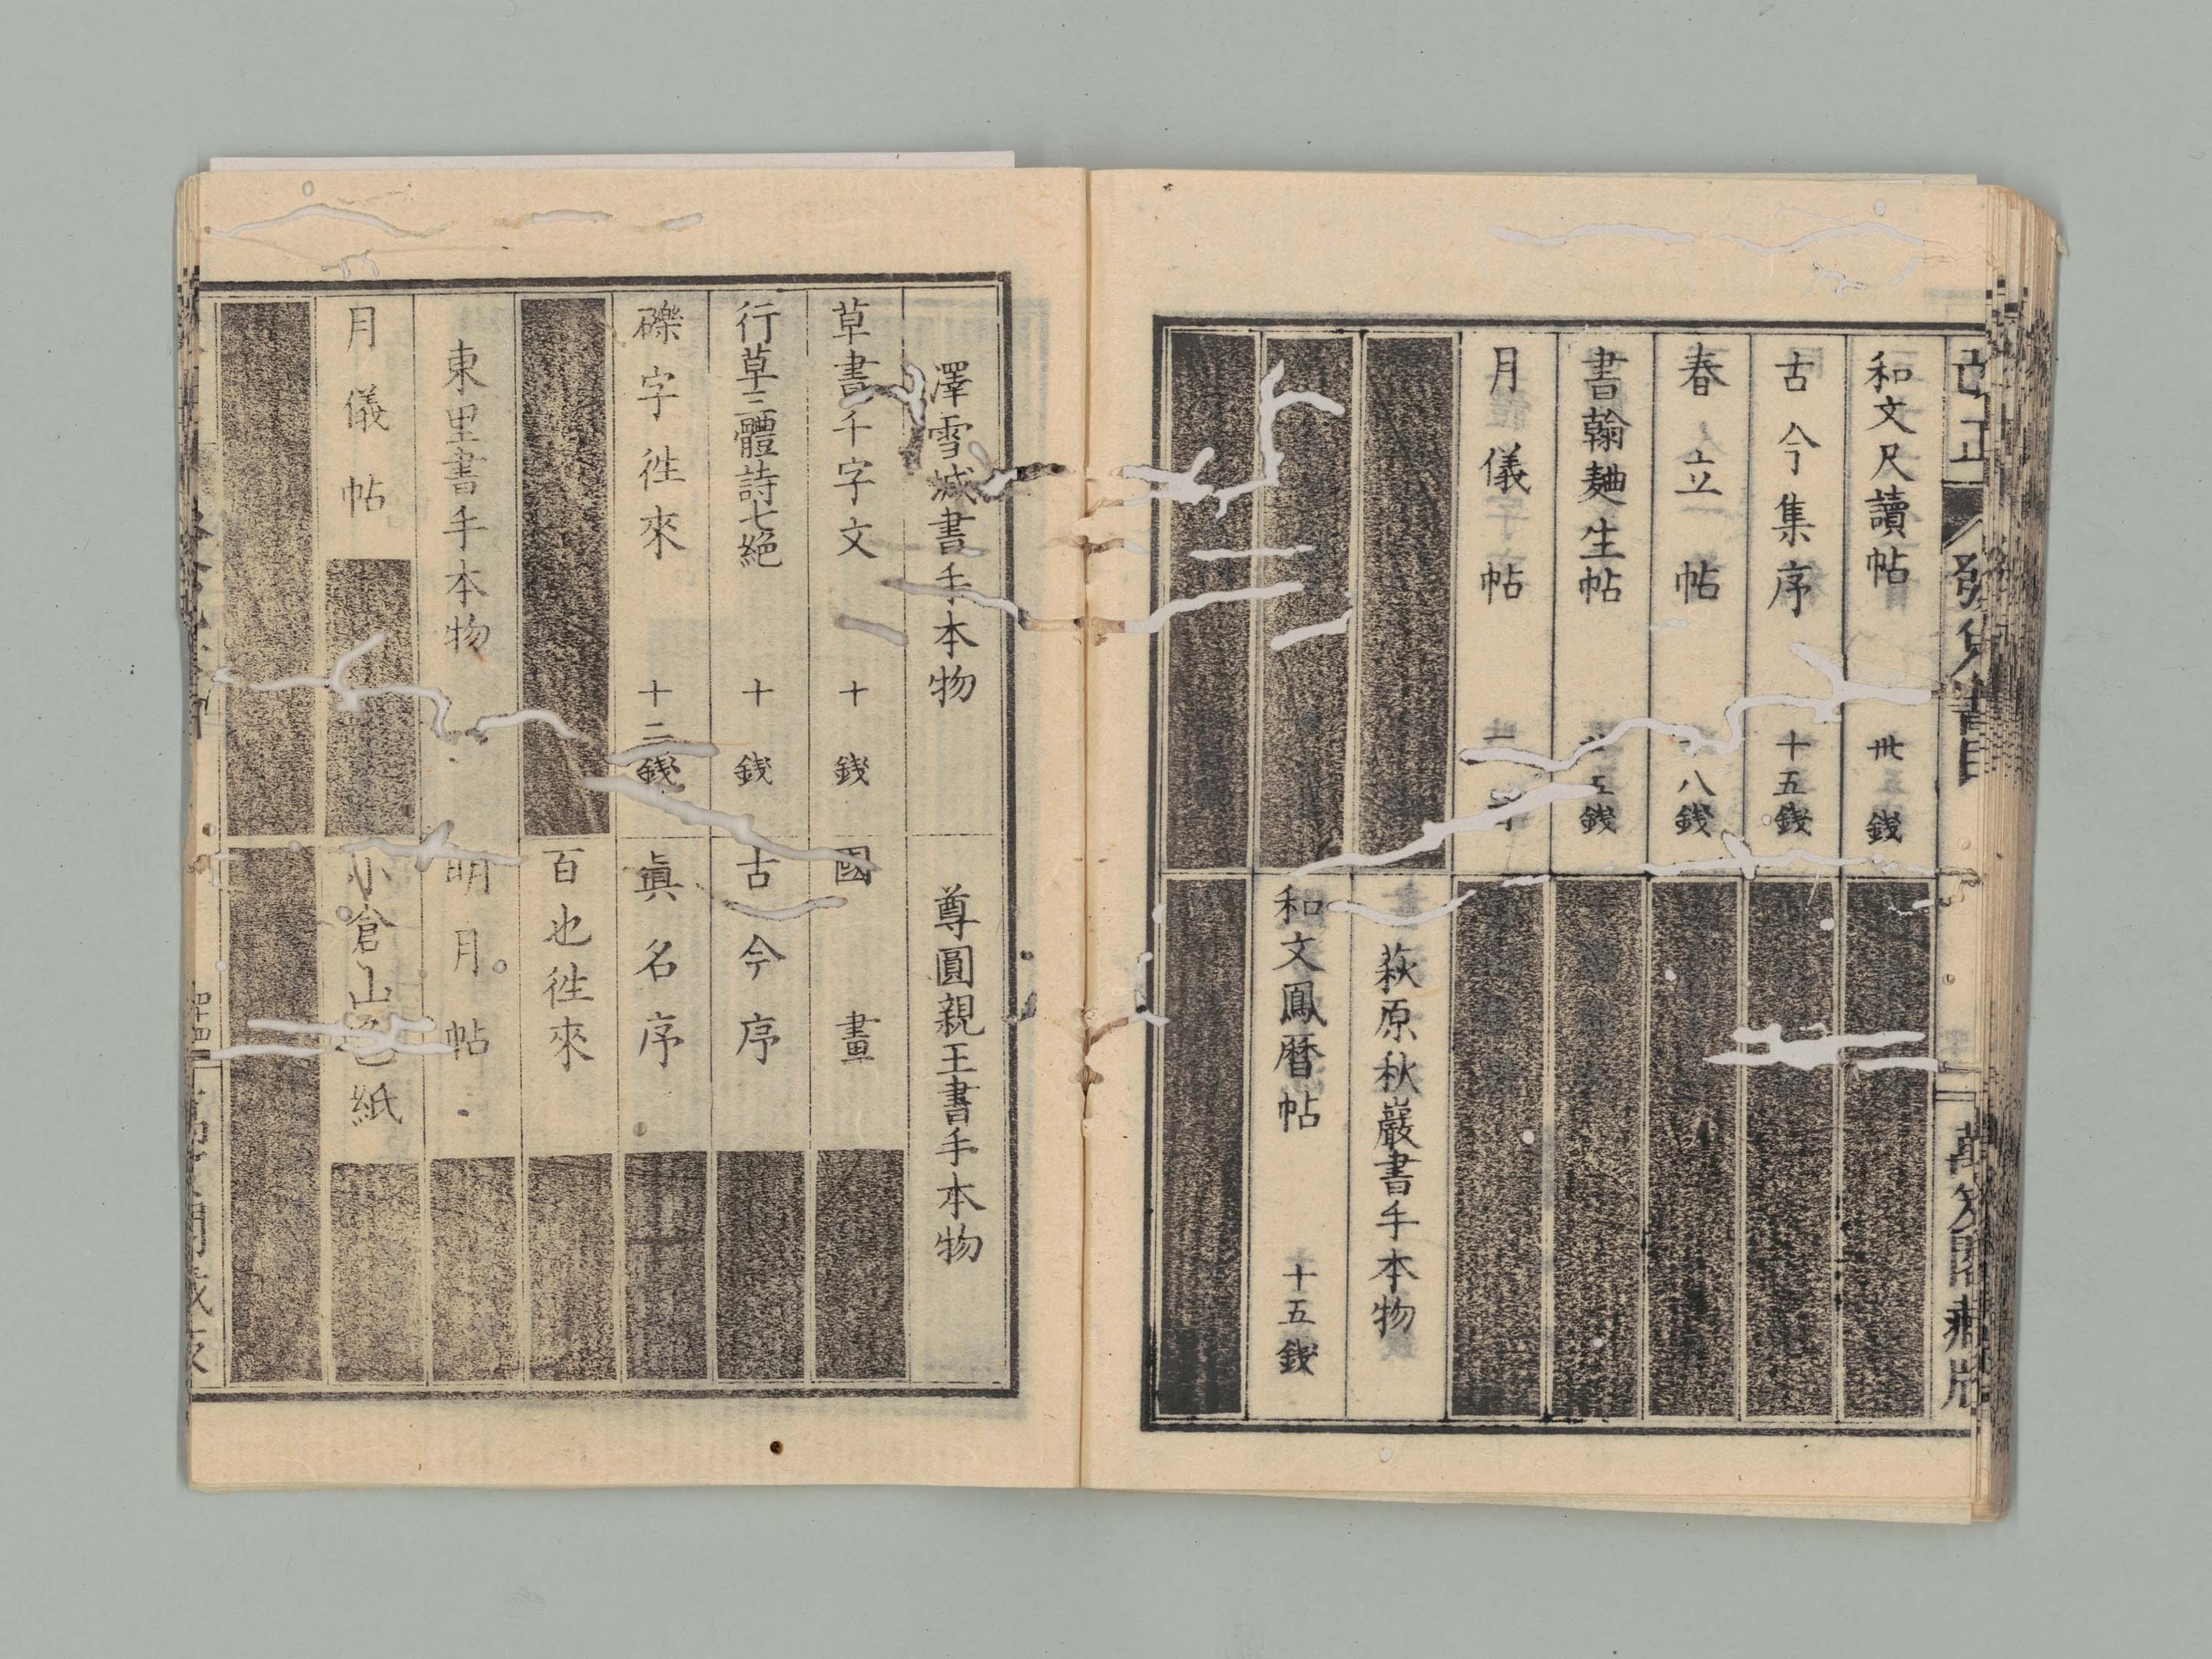 和文尺讀帖 卅五錢
古今集序 十五錢
春立帖 八錢
書翰麯生帖 五錢
月儀帖
萩原秋巖書手本物
和文鳳暦帖 十五錢
澤雪滅書手本物
草書千字文 十錢
行草三體詩七絶 十錢
礫字徃來 十二錢
東里書手本物
月儀帖
尊圓親王書手本物
國畫
古今序
眞名序
百也徃來
明月帖
小倉山色紙
四十四